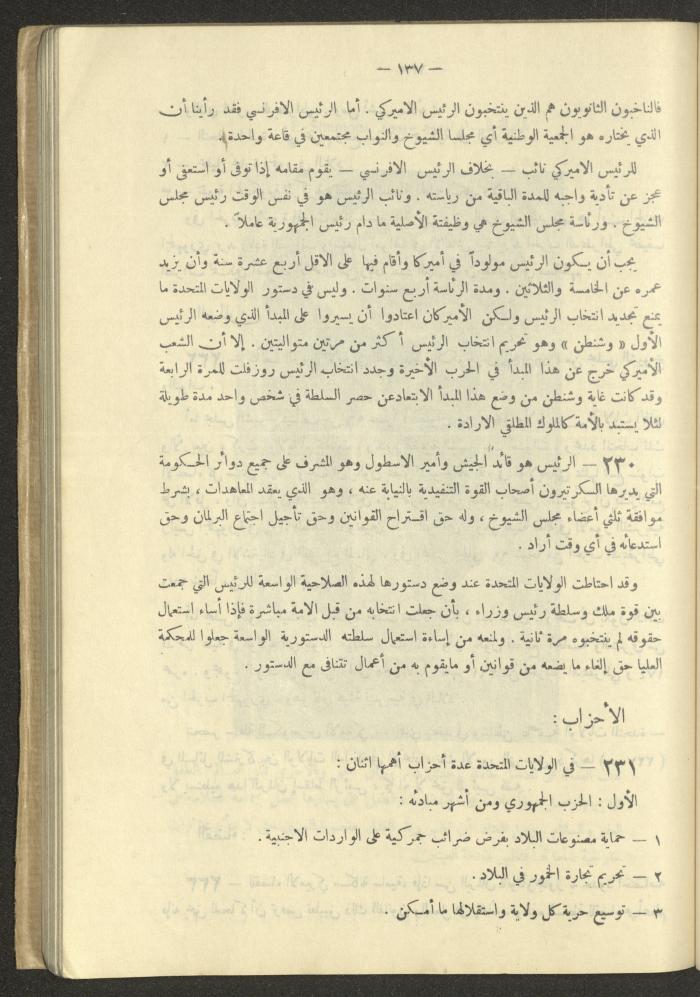 — ١٣٧ —
فالناخبون الثانويون هم الذين ينتخبون الرئيس الاميركي . أما الرئيس الافرنسي فقد رأينا أن
الذي يختاره هو الجمعية الوطنية أي مجلسا الشيوخ والنواب مجتمعين في قاعة واحدة .
للرئيس الاميركي نائب — بخلاف الرئيس الافرنسي — يقوم مقامه إذا توفى أو استعفى أو
عجز عن تأدية واجبه للمدة الباقية من رياسته . ونائب الرئيس هو في نفس الوقت رئيس مجلس
الشيوخ . ورئاسة مجلس الشيوخ هي وظيفته الأصلية ما دام رئيس الجمهورية عاملاً .
يجب أن يكون الرئيس مولوداً في أميركا وأقام فيها على الاقل أربع عشرة سنة وأن يزيد
عمره عن الخامسة والثلاثين . ومدة الرئاسة أربع سنوات . وليس في دستور الولايات المتحدة ما
يمنع تجديد انتخاب الرئيس ولكن الأميركان اعتادوا أن يسيروا على المبدأ الذي وضعه الرئيس
الأول « وشنطن » وهو تحريم انتخاب الرئيس أكثر من مرتين متواليتين . إلا أن الشعب
الأميركي خرج عن هذا المبدأ في الحرب الأخيرة وجدد انتخاب الرئيس روزفلت للمرة الرابعة
وقد كانت غاية وشنطن من وضع هذا المبدأ الابتعادعن حصر السلطة في شخص واحد مدة طويلة
لئلا يستبد بالأمة كالملوك المطلقي الارادة .
٢٣٠ — الرئيس هو قائد الجيش وأمير الاسطول وهو المشرف على جميع دوائر الحكومة
التي يديرها السكرتيرون أصحاب القوة التنفيدية بالنيابة عنه ، وهو الذي يعقد المعاهدات ، بشرط
موافقة ثلثي أعضاء مجلس الشيوخ ، وله حق اقتراح القوانين وحق تأجيل اجتماع البرلمان وحق
استدعائه في أي وقت أراد .
وقد احتاطت الولايات المتحدة عند وضع دستورها لهذه الصلاحية الواسعة للرئيس التي جمعت
بين قوة ملك وسلطة رئيس وزراء ، بأن جعلت انتخابه من قبل الامة مباشرة فإذا أساء استعمال
حقوقه لم ينتخبوه مرة ثانية . ولمنعه من إساءة استعمال سلطته الدستورية الواسعة جعلوا للمحكمة
العليا حق إلغاء ما يضعه من قوانين أو مايقوم به من أعمال تتنافى مع الدستور .
الأحزاب :
٢٣١ — في الولايات المتحدة عدة أحزاب أهمها اثنان :
الأول : الحزب الجمهوري ومن أشهر مبادئه :
١ — حماية مصنوعات البلاد بفرض ضرائب جمركية على الواردات الاجنبية .
٢ — تحريم تجارة الخمور في البلاد .
٣ — توسيع حرية كل ولاية واستقلالها ما أمكن .